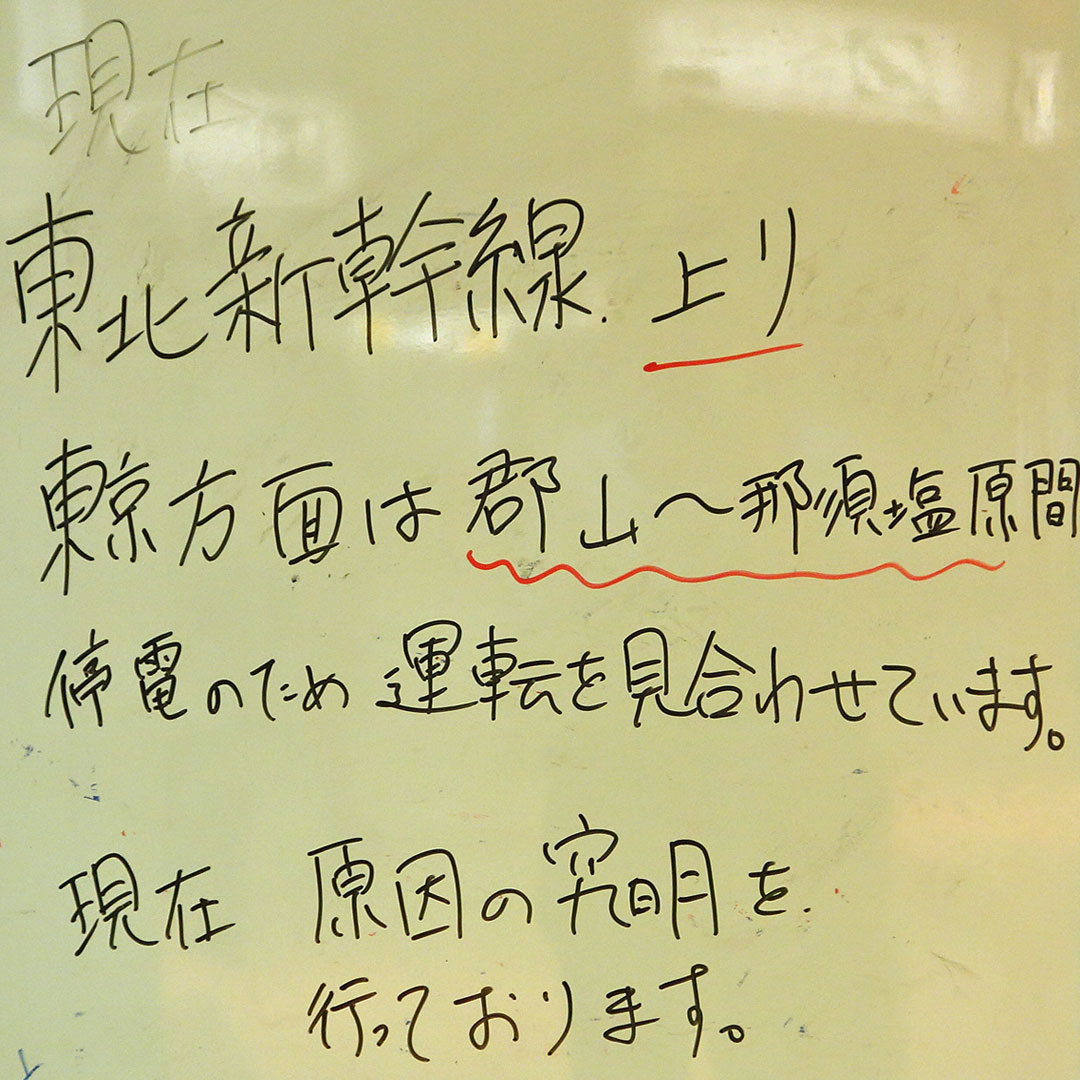 現在
東北新幹線 上り
東京方面は郡山〜那須塩原間
停電のため運転を見合わせています。
現在 原因の究明を
行っております。